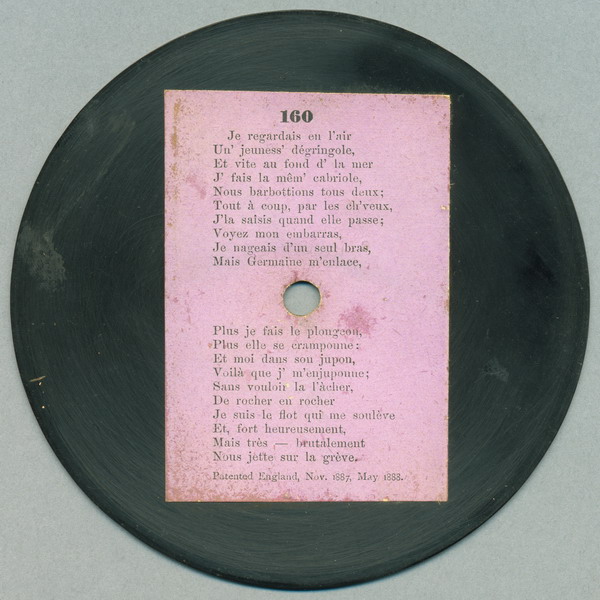 160
Je regardais en l'air
Un' jeuness' dégringole,
Et vite au fond d' la mer
J' fais la mêm' cabriole,
Nous barbottions tous deux;
Tout à coup, par les ch'veux,
J'la saisis quand elle passe;
Voyez mon embarras,
Je nageais d'un seul bras,
Mais Germaine m'enlace,
Plus je fais le plongeon,
Plus elle se cramponne;
Et moi dans son jupon,
Voilà que j' m'enjuponne;
Sans vouloir la l'âcher,
De rocher en rocher
Je suis le flot qui me souléve
Et, fort heureusement,
Mais très — brutàlement
Nous jette sur la grève.
Patented England, Nov. 1887, May 1888.